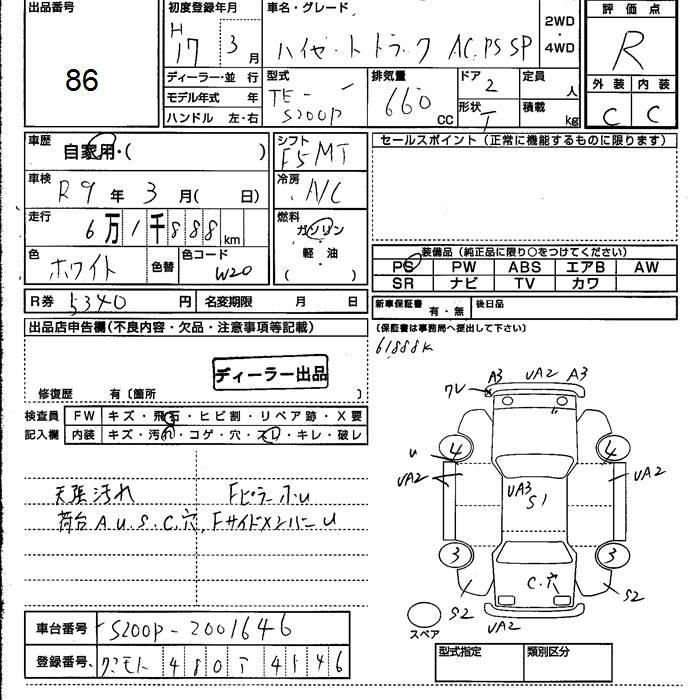 出品番号
86
初度登録年月
H17 3月
車名・グレード
ハイゼットトラック AC.PS SP
2WD・4WD
評価点
R
外装 内装
C C
ディーラー・並 行
モデル年式 年
ハンドル 左・右
型式
TE-S200P
排気量
660 cc
ドア 2
形状 T
定員 人
積載 kg
車歴
自家用・( )
シフト
F5MT
セールスポイント(正常に機能するものに限ります)
車検
R9年 3月( 日)
冷房
A/C
走行
6万1千888km
燃料
ガソリン・軽油・( )
色
ホワイト
色替
色コード
W20
装備品(純正品に限り○をつけてください)
PS PW ABS エアB AW
SR ナビ TV カワ
R券 5340円 名変期限 月 日
新車保証書 有・無 後日品
(保証書は事務局へ提出して下さい)
61888K
出品店申告欄(不良内容・欠品・注意事項等記載)
ディーラー出品
修復歴 有〔箇所 〕
検査員記入欄
FW キズ・飛石・ヒビ割・リペア跡・X要
内装 キズ・汚れ・コゲ・穴・スレ・キレ・破レ
天張汚れ FピラーホU
荷台A.U.S.C.穴, FサイドメンバーU
ワレ A3 UA2 A3
4 4
U
UA2 UA2
UA3
S1
3 3
C.穴
S2 S2
UA2
スペア
車台番号 S200P-2001646
登録番号
480 4146
型式指定 類別区分